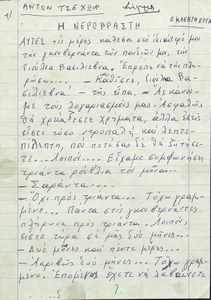 1/
ΑΝΤΟΝ ΤΣΕΧΩΦ
ΕΚΛΕΚΤΑ ΕΡΓΑ
Η ΝΕΡΟΒΡΑΣΤΗ
ΑΥΤΕΣ τις μέρες κάλεσα στο ιδιαίτερό μου
την γκουβερνάντα των παιδιών μου, την
Γιούλια Βασίλιεβνα. Έπρεπε να την πλη-
ρώσω.... - Καθίστε, Γιούλια Βα-
σίλιεβνα! - της είπα. - Ας κάνου-
με τους λογαριασμούς μας. Ασφαλώς
θα χρειάζεστε χρήματα, αλλά εσείς
είσαστε τόσο ντροπαλή και λεπτε-
πίλεπτη, που ποτέ σας δε θα ζητήσε-
τε.... Λοιπόν.... Είχαμε συμφωνήσει
τριάντα ρούβλια τον μήνα....
- Σαράντα....
- Όχι προς τριάντα.... Τόχω γραμ-
μένο.... Πάντα στις γκουβερνάντες
πλήρωνα προς τριάντα.. Λοιπόν,
είστε τώρα σε μας δύο μήνες...
- Δυό μήνες και πέντε μέρες...
- Ακριβώς δυό μήνες... Τόχω γραμ-
μένο. Επομένως έχετε να λαβαίνετε